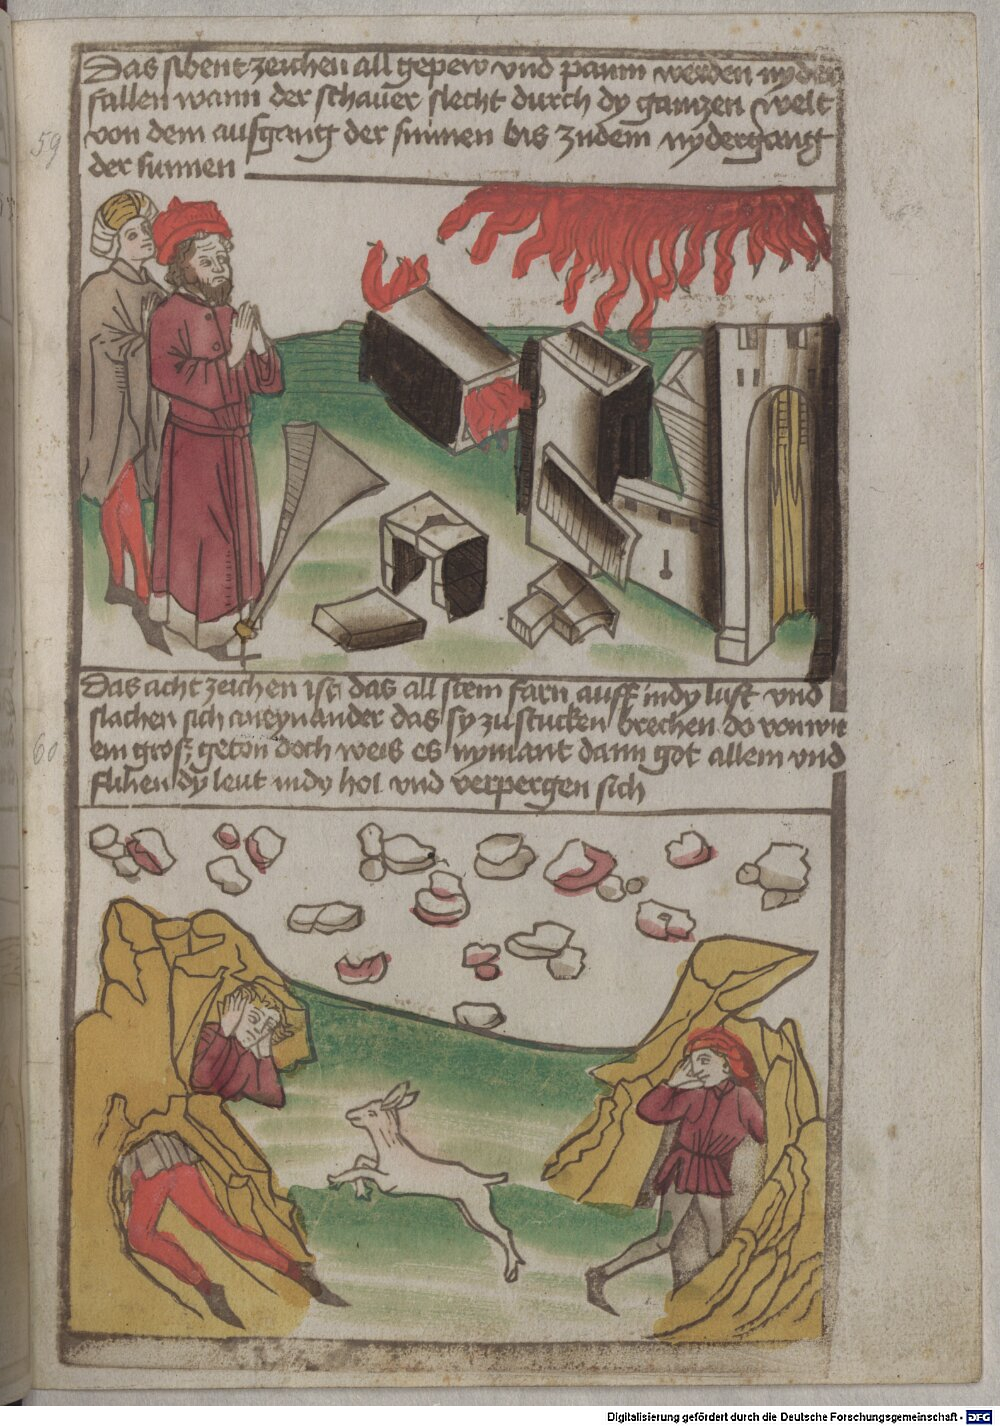 Das sibent zeichen all gepew vnd paum werden nyder
fallen wann der schauer slecht durch dy gantzen welt
von dem aufgang der sunnen bis zudem nydergang
der sunnen
59
Das acht zeichen ist das all stein farn auff indy luft vnd
slachen sich aneynander das sy zu stucken brechen do von wirt
ein groß geton doch weis es nymant dann got allein vnd
flihen dy leut indy hol vnd verpergen sich
60
Digitalisierung gefördert durch die Deutsche Forschungsgemeinschaft - DFG